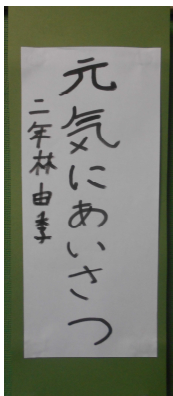 元気にあいさつ
二年林由季